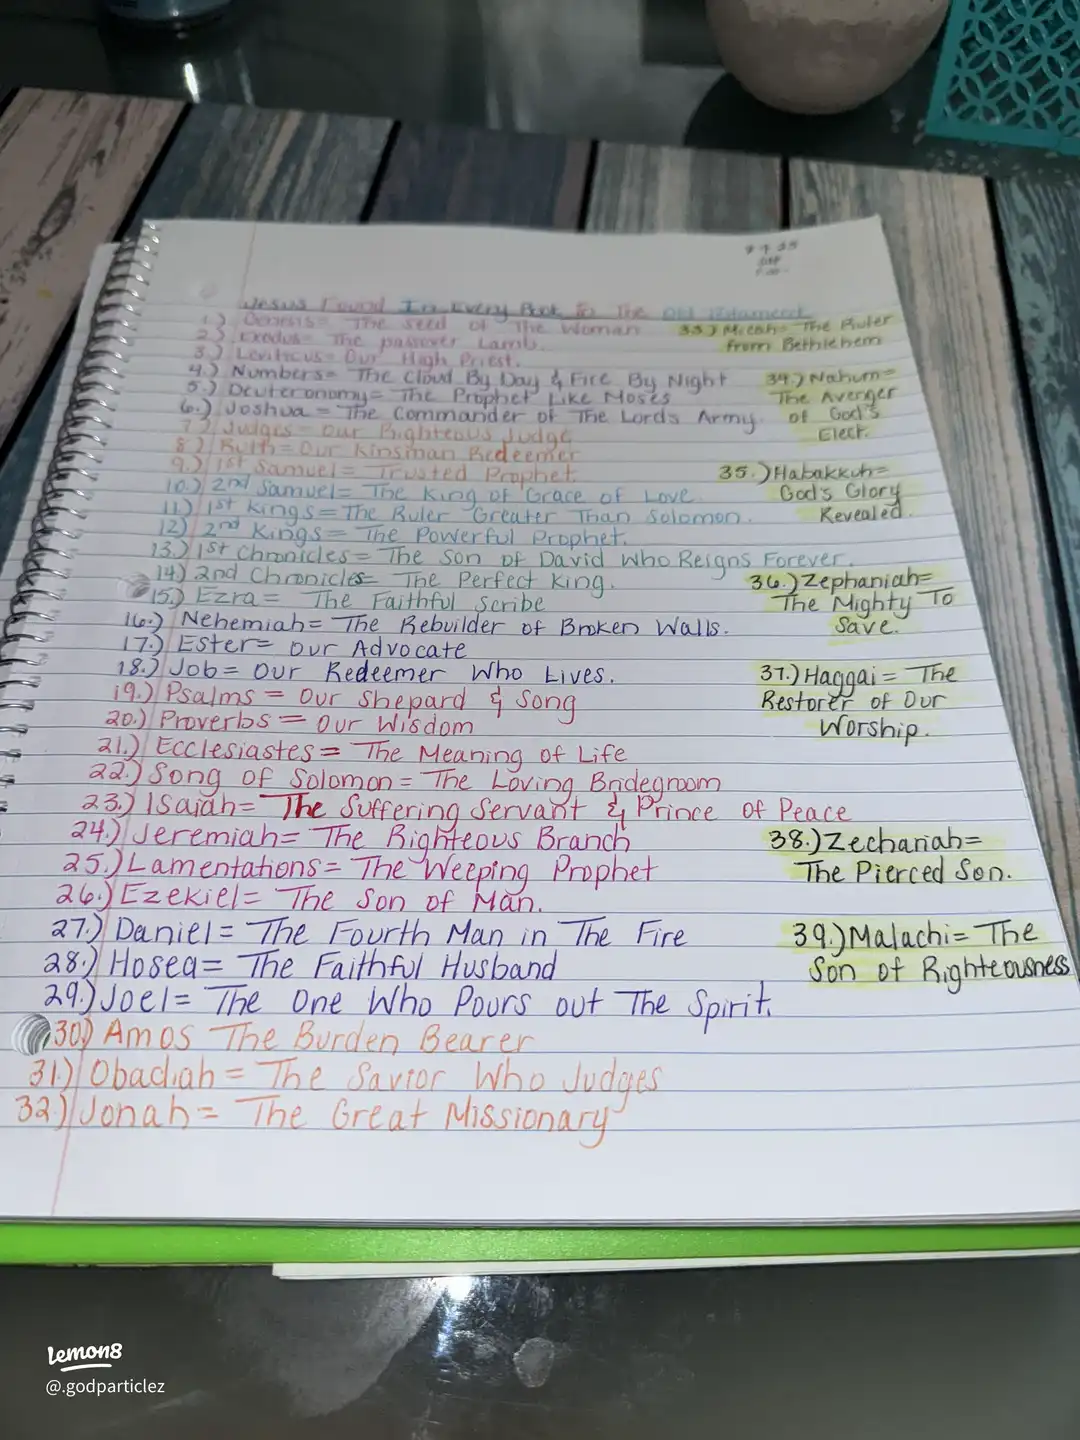 Jesus Found In Every Book In The Old Testament
1.) Genesis= The Seed of The Woman
2.) Exodus= The passover Lamb.
3.) Leviticus= Our High Priest.
4.) Numbers= The Cloud By Day & Fire By Night
5.) Deuteronomy= The Prophet Like Moses
6.) Joshua = The Commander of The Lords Army.
7.) Judges= Our Righteous Judge
8.) Ruth= Our Kinsman Redeemer
9.) 1st Samuel= Trusted Prophet.
10.) 2nd Samuel= The King of Grace of Love
11.) 1st Kings= The Ruler Greater Than Solomon.
12) 2nd Kings= The Powerful Prophet.
13.) 1st Chronicles= The Son of David Who Reigns Forever.
14) 2nd Chronicles= The Perfect King.
15.) Ezra= The Faithful Scribe
16.) Nehemiah= The Rebuilder of Broken Walls.
17.) Ester= Our Advocate
18.) Job= Our Redeemer Who Lives.
19.) Psalms = Our Shepard & Song
20.) Proverbs = Our Wisdom
21.) Ecclesiastes= The Meaning of Life
22.) Song of Solomon= The Loving Bridegroom
23.) Isaiah= The Suffering Servant & Prince of Peace
24.) Jeremiah= The Righteous Branch
25.) Lamentations= The Weeping Prophet
26.) Ezekiel= The Son of Man.
27.) Daniel= The Fourth Man in The Fire
28.) Hosea= The Faithful Husband
29.) Joel= The One Who Pours out The Spirit.
30.) Amos The Burden Bearer
31.) Obadiah= The Savior Who Judges
32.) Jonah= The Great Missionary
33.) Micah= The Ruler
from Bethlehem
34.) Nahum=
The Avenger
of God's
Elect.
35.) Habakkuh=
God's Glory
Revealed.
36.) Zephaniah=
The Mighty To
Save.
37.) Haggai= The
Restorer of Our
Worship.
38.) Zechariah=
The Pierced Son.
39.) Malachi= The
Son of Righteousness
lemon8
@.godparticlez